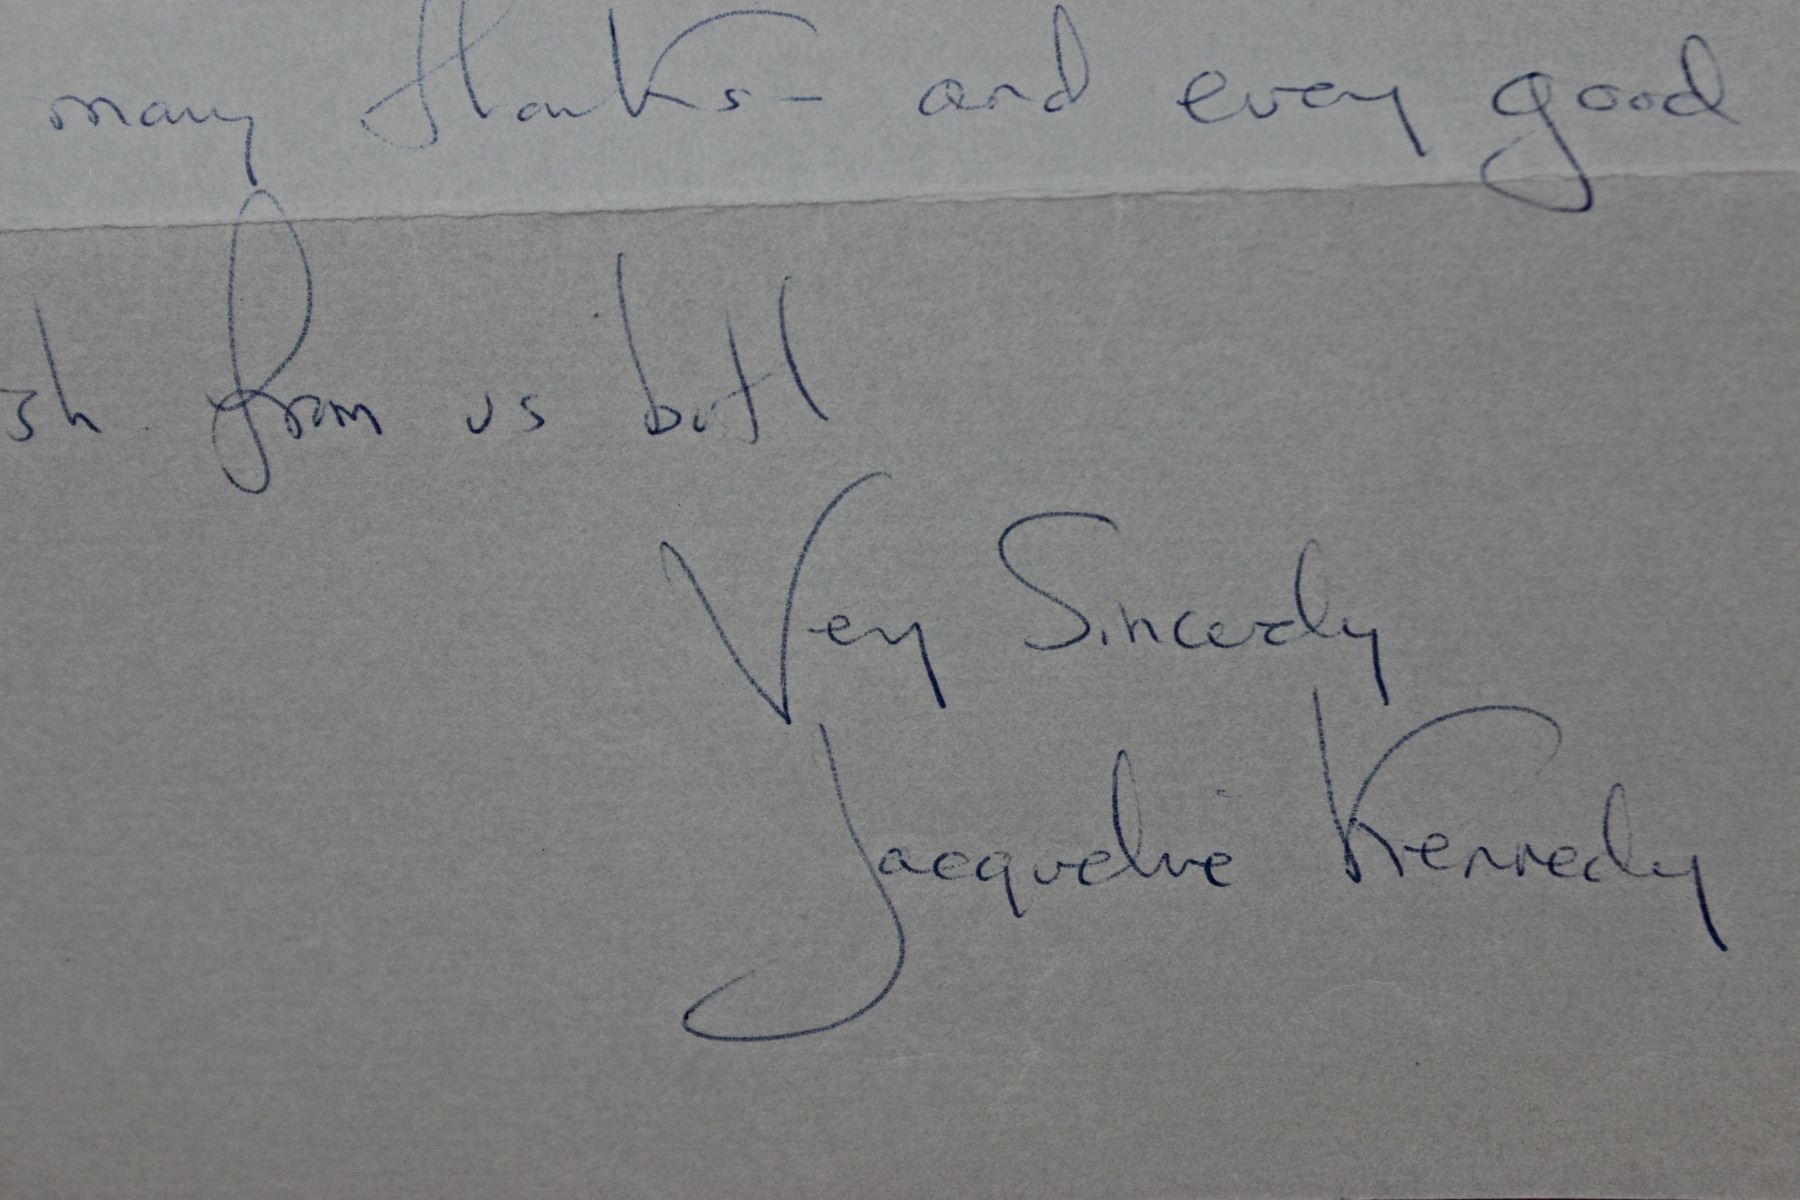 many thanks – and every good
ish from us both
Very Sincerely
Jacqueline Kennedy